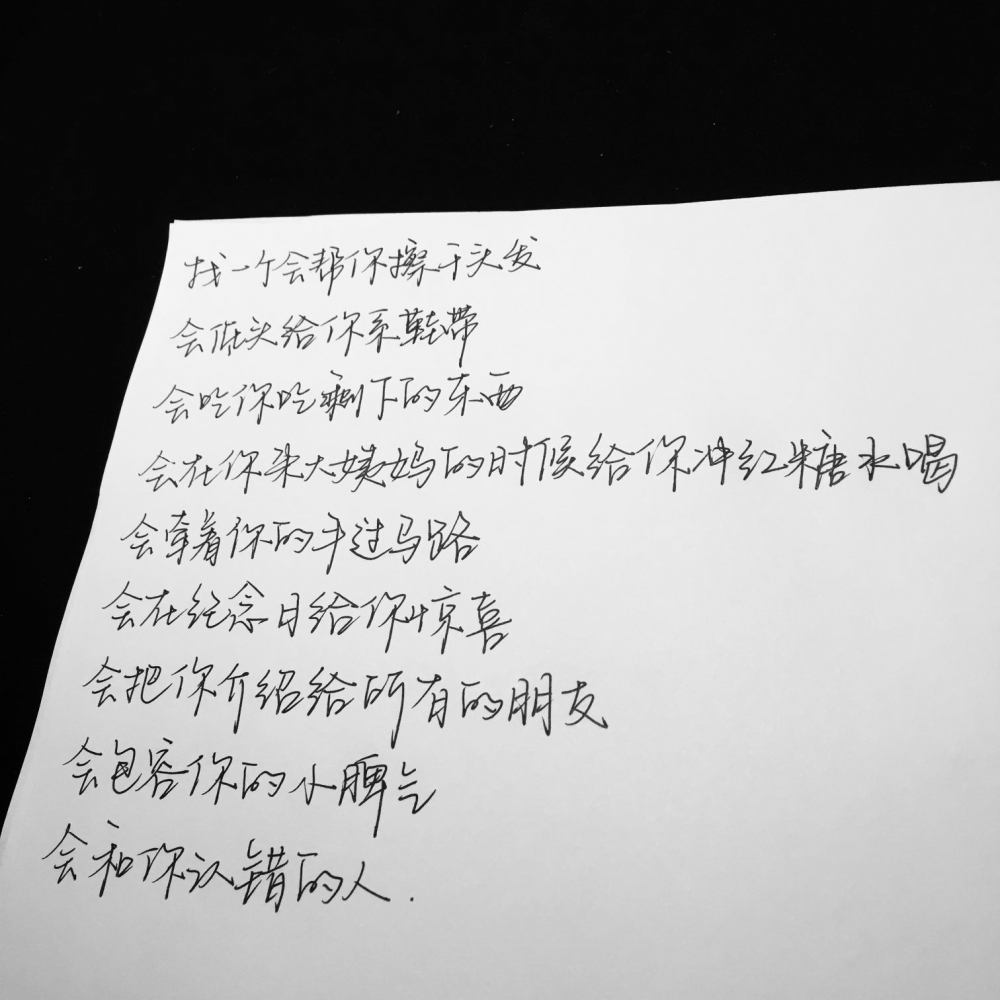 找一个会帮你擦干头发
会低头给你系鞋带
会吃你吃剩下的东西
会在你来大姨妈的时候给你冲红糖水喝
会牵着你的手过马路
会在纪念日给你惊喜
会把你介绍给所有的朋友
会包容你的小脾气
会和你认错的人.